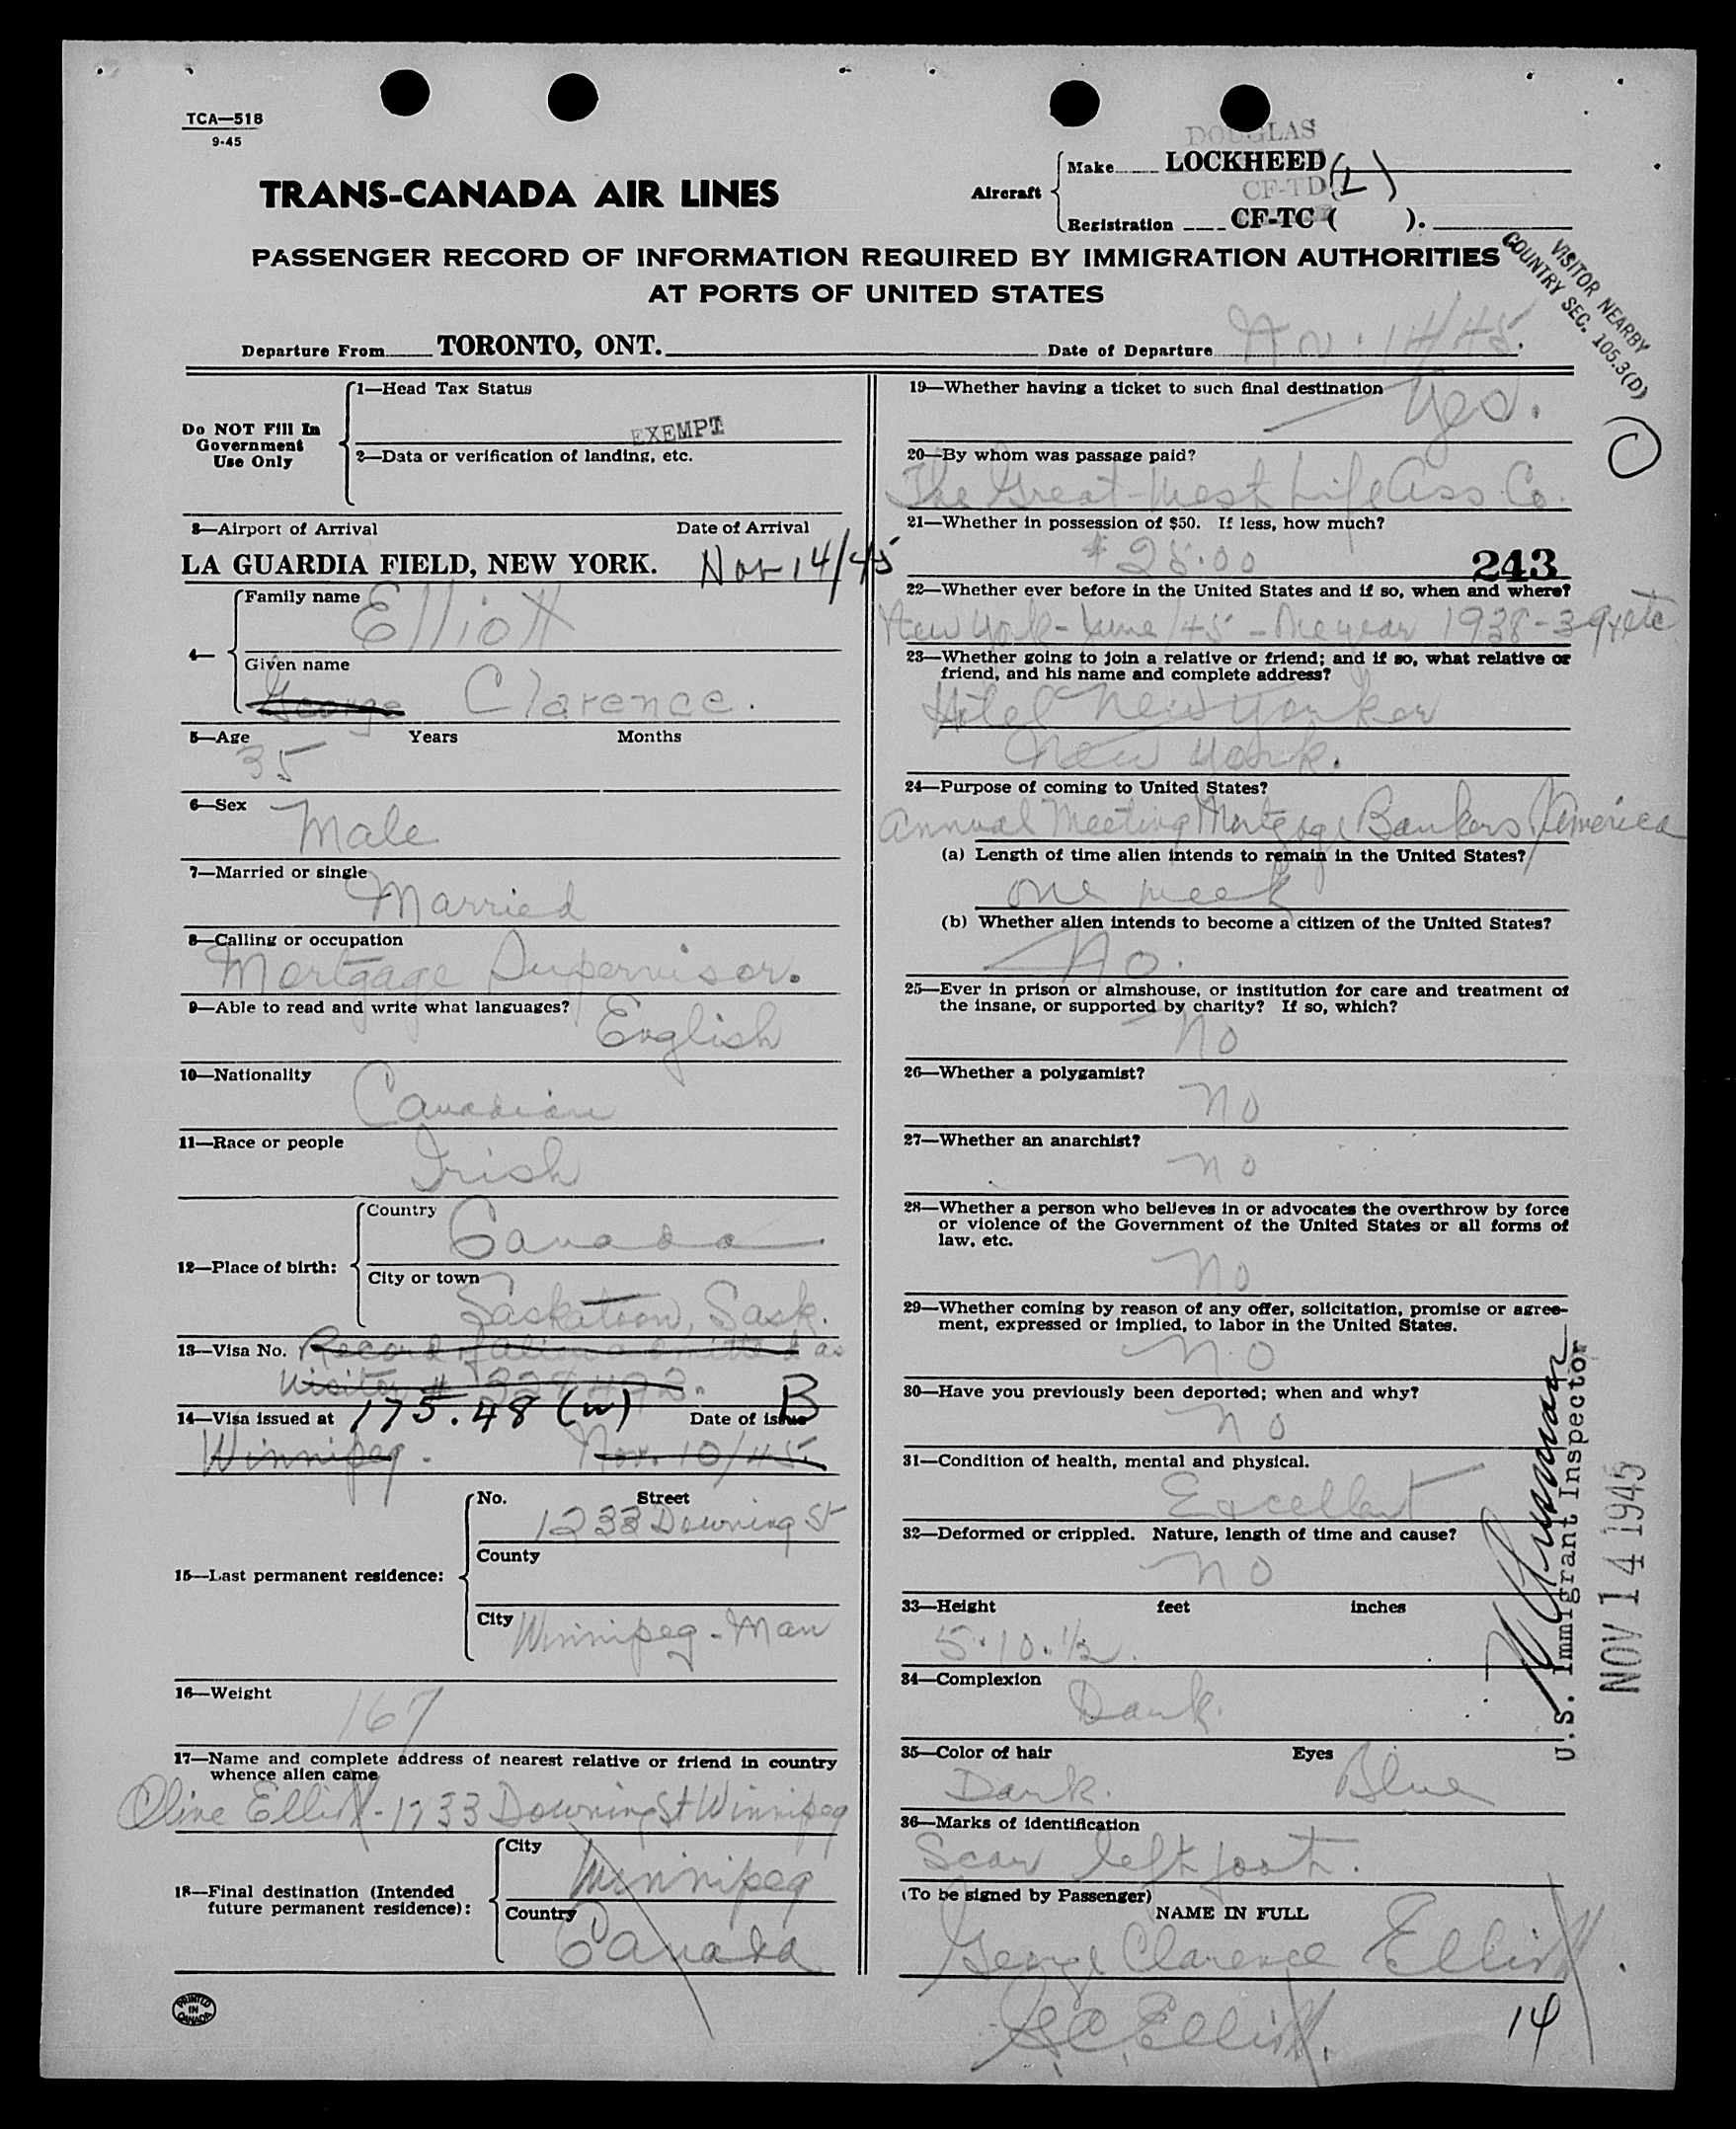 TCA—518
9-45
DOUGLAS
Make LOCKHEED
TRANS-CANADA AIR LINES
Aircraft
CF-TD (L)
Registration CF-TC ( ).
PASSENGER RECORD OF INFORMATION REQUIRED BY IMMIGRATION AUTHORITIES
AT PORTS OF UNITED STATES
VISITOR NEARBY
COUNTRY SEC. 105.3(D)
Departure From TORONTO, ONT.
Date of Departure Nov. 14/45.
Do NOT Fill In
Government
Use Only
1—Head Tax Status
EXEMPT
2—Data or verification of landing, etc.
3—Airport of Arrival Date of Arrival
LA GUARDIA FIELD, NEW YORK. Nov 14/45
4—
Family name
Elliott
Given name
George Clarence.
5—Age Years Months
35
6—Sex
Male
7—Married or single
Married
8—Calling or occupation
Mortgage Supervisor.
9—Able to read and write what languages?
English
10—Nationality
Canadian
11—Race or people
Irish
12—Place of birth:
Country
Canada
City or town
Saskatoon, Sask.
13—Visa No. Record of alien admitted as
Visitor #
175.48 (w) B
14—Visa issued at Date of issue
Winnipeg. Nov. 10/45.
15—Last permanent residence:
No. Street
1233 Downing St
County
City
Winnipeg - Man
16—Weight
167
17—Name and complete address of nearest relative or friend in country
whence alien came
Olive Elliott - 1233 Downing St Winnipeg
18—Final destination (Intended
future permanent residence):
City
Winnipeg
Country
Canada
PRINTED
IN
CANADA
19—Whether having a ticket to such final destination
Yes.
20—By whom was passage paid?
The Great-West Life Ass. Co.
21—Whether in possession of $50. If less, how much?
$25.00
243
22—Whether ever before in the United States and if so, when and where?
New York - June/45 - One year 1938-39 etc
23—Whether going to join a relative or friend; and if so, what relative or
friend, and his name and complete address?
Hotel New Yorker
New York.
24—Purpose of coming to United States?
Annual Meeting Mortgage Bankers America
(a) Length of time alien intends to remain in the United States?
one week
(b) Whether alien intends to become a citizen of the United States?
No.
25—Ever in prison or almshouse, or institution for care and treatment of
the insane, or supported by charity? If so, which?
No
26—Whether a polygamist?
No
27—Whether an anarchist?
no
28—Whether a person who believes in or advocates the overthrow by force
or violence of the Government of the United States or all forms of
law, etc.
No
29—Whether coming by reason of any offer, solicitation, promise or agree-
ment, expressed or implied, to labor in the United States.
No
30—Have you previously been deported; when and why?
no
31—Condition of health, mental and physical.
Excellent
32—Deformed or crippled. Nature, length of time and cause?
no
33—Height feet inches
5.10.½.
34—Complexion
Dark.
35—Color of hair Eyes
Dark. Blue
36—Marks of identification
Scar left foot.
(To be signed by Passenger)
NAME IN FULL
George Clarence Elliott.
G.C. Elliott.
14
U.S. Immigrant Inspector
NOV 14 1945